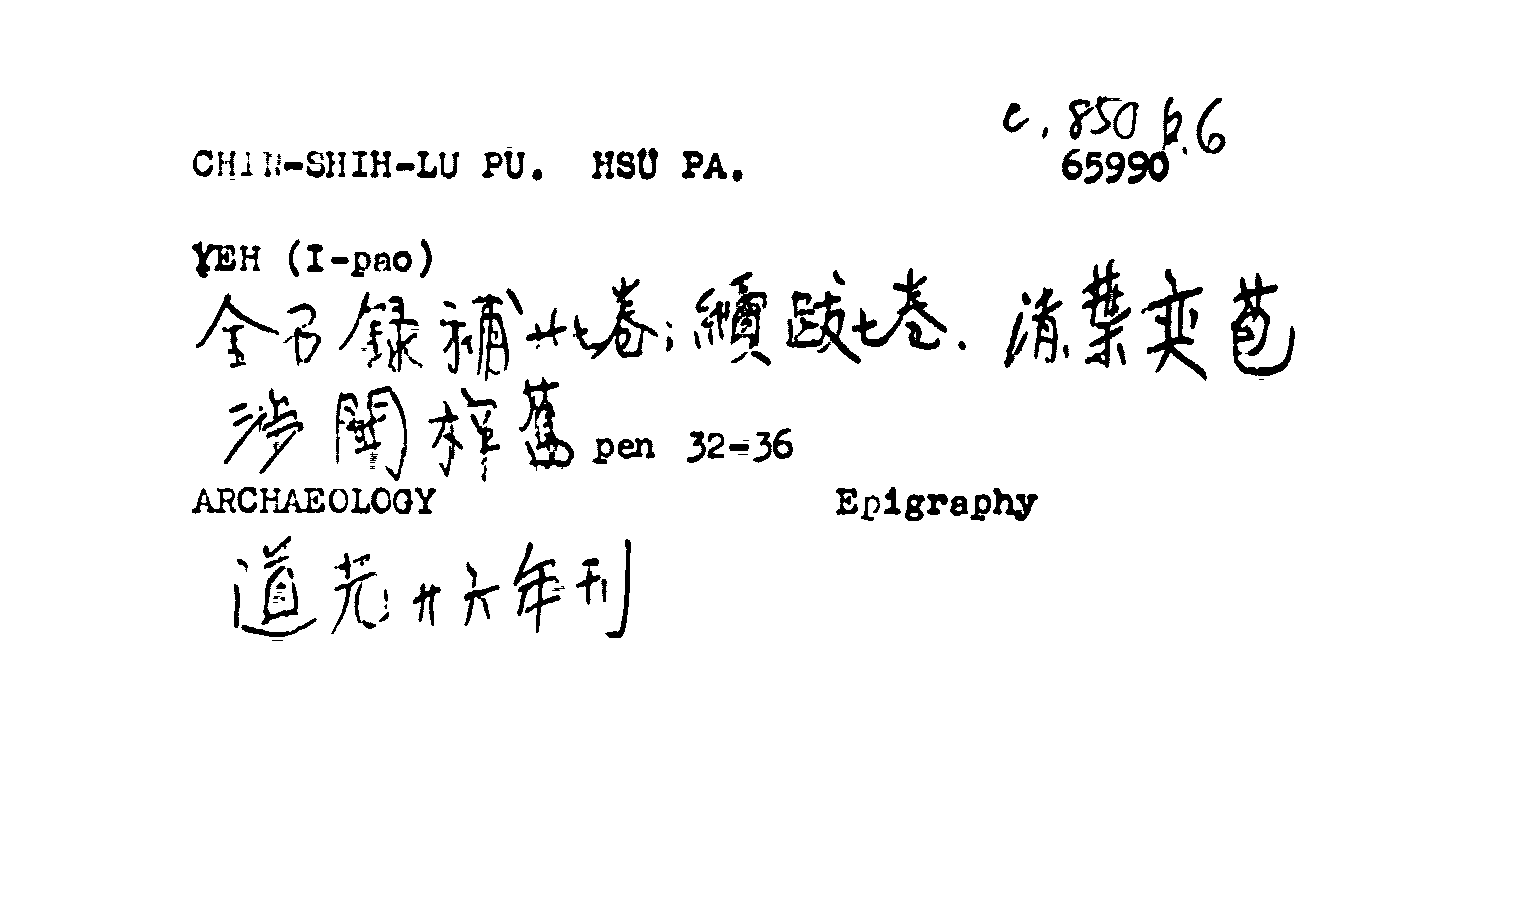 c. 850 b. 6
CHIN-SHIH-LU PU. HSÜ PA. 65990
YEH (I-pao)
金石錄補廿七卷; 續跋七卷. 清葉奕苞
涉聞梓舊 pen 32-36
ARCHAEOLOGY Epigraphy
道光廿六年刊